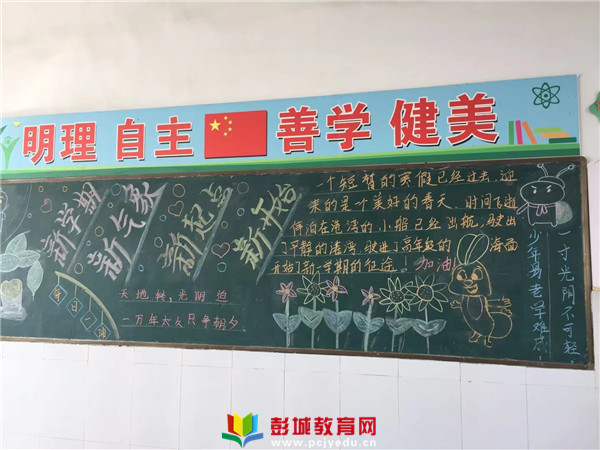 明理 自主 善学 健美
新学期
新气象
新起点
新开始
每日一
天地转,光阴迫
一万年太久只争朝夕
一个短暂的寒假已经过去,迎
来的是一个美好的春天。时间飞逝
停泊在港湾的小船已经出航,驶出
了平静的港湾,驶进了高年级的 海面
开始了新一学期的征途!加油!
一寸光阴不可轻。
少年易老学难成,
彭城教育网
www.pcjyedu.cn